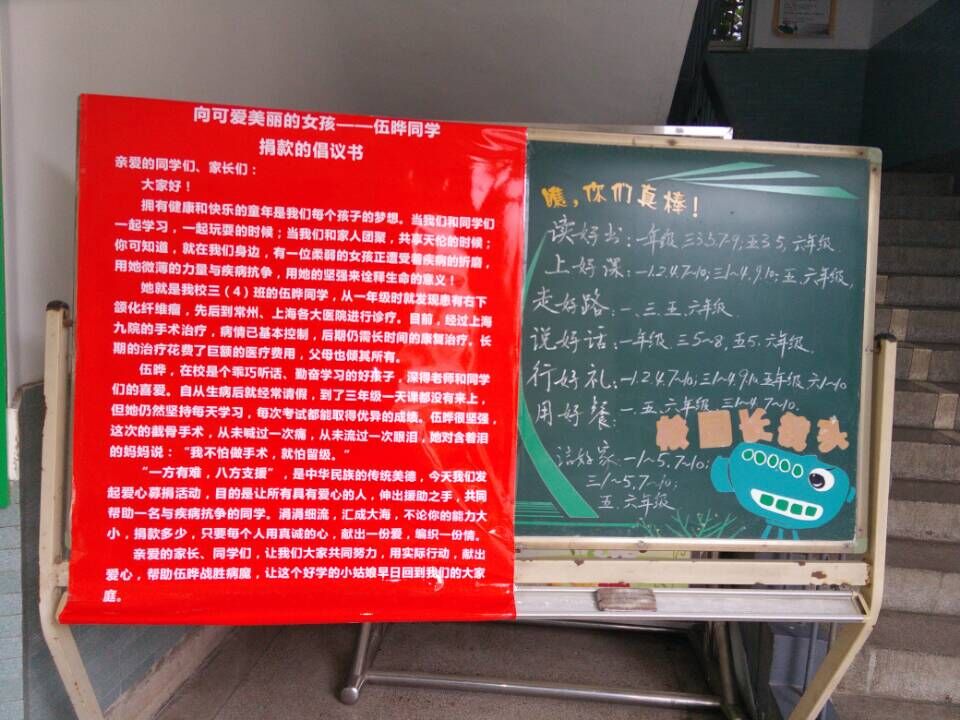 向可爱美丽的女孩——伍晔同学
捐款的倡议书
亲爱的同学们、家长们：
大家好！
拥有健康和快乐的童年是我们每个孩子的梦想。当我们和同学们
一起学习，一起玩耍的时候；当我们和家人团聚，共享天伦的时候；
你可知道，就在我们身边，有一位柔弱的女孩正遭受着疾病的折磨，
用她微薄的力量与疾病抗争，用她的坚强来诠释生命的意义！
她就是我校三（4）班的伍晔同学，从一年级时就发现患有右下
颌化纤维瘤，先后到常州、上海各大医院进行诊疗。目前，经过上海
九院的手术治疗，病情已基本控制，后期仍需长时间的康复治疗。长
期的治疗花费了巨额的医疗费用，父母也倾其所有。
伍晔，在校是个乖巧听话、勤奋学习的好孩子，深得老师和同学
们的喜爱。自从生病后就经常请假，到了三年级一天课都没有来上，
但她仍然坚持每天学习，每次考试都能取得优异的成绩。伍晔很坚强，
这次的截骨手术，从未喊过一次痛，从未流过一次眼泪，她对含着泪
的妈妈说：“我不怕做手术，就怕留级。”
“一方有难，八方支援”，是中华民族的传统美德，今天我们发
起爱心募捐活动，目的是让所有具有爱心的人，伸出援助之手，共同
帮助一名与疾病抗争的同学。涓涓细流，汇成大海，不论你的能力大
小，捐款多少，只要每个人用真诚的心，献出一份爱，编织一份情。
亲爱的家长、同学们，让我们大家共同努力，用实际行动，献出
爱心，帮助伍晔战胜病魔，让这个好学的小姑娘早日回到我们的大家
庭。
瞧，你们真棒！
读好书：一年级 三3.5.7-9；五3 5，六年级
上好课：一1.2.4.7~10；三1~4.9.10；五.六年级.
走好路：一、三.五.六年级.
说好话：一年级 三5~8，五5.六年级.
行好礼：一1.2.4.7~10；三1~4.9.10.五年级 六1~10
用好餐：一.五.六年级 三1~4.7~10.
洁好家：一1~5.7~10；
三1~5.7~10；
五.六年级
校园长镜头